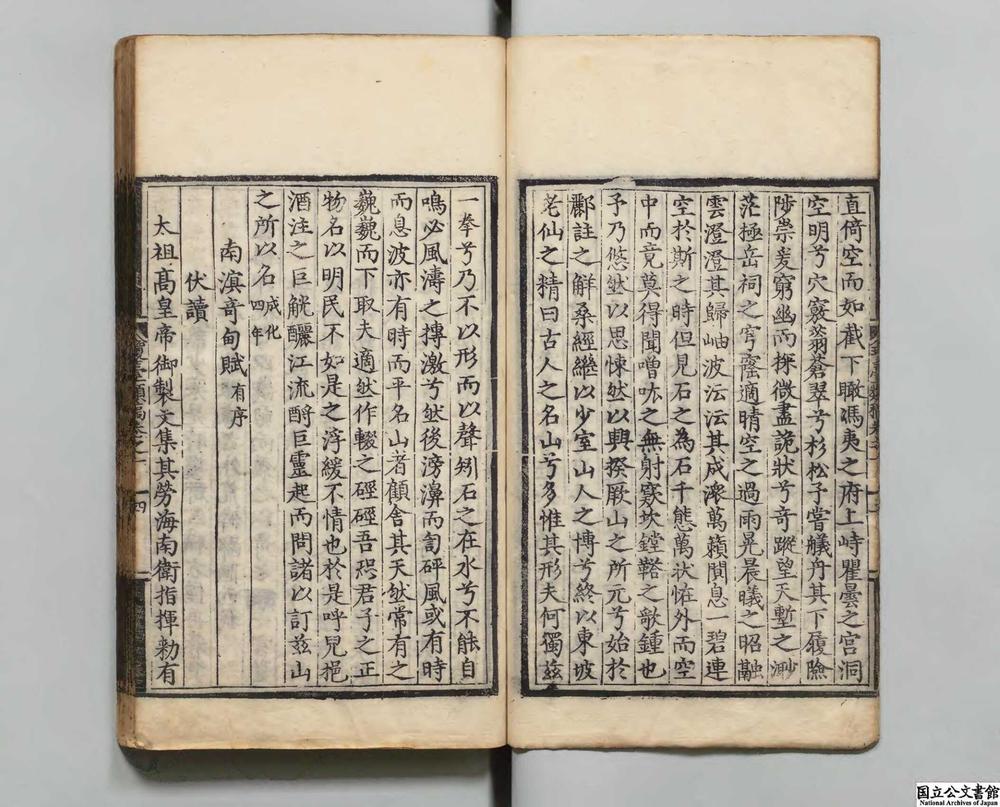 直倚空而如截下瞰馮夷之府上峙瞿曇之宫洞
空明兮穴竅蓊蒼翠兮杉松予嘗艤舟其下履險
陟崇爰窮幽而探微盡詭狀兮奇蹤望天塹之渺
茫極岳祠之穹窿適晴空之過雨晃晨曦之昭融
雲澄澄其歸岫波沄沄其成漴萬籟閴息一碧連
空於斯之時但見石之為石千態萬狀恠外而空
中而竟莫得聞噌吰之無射窾坎鏜鞳之歌鍾也
予乃悠然以思悚然以興揆厥山之所元兮始於
酈註之觧桑經繼以少室山人之博兮終以東坡
老仙之精曰古人之名山兮多惟其形夫何獨兹
一拳兮乃不以形而以聲矧石之在水兮不能自
鳴必風濤之摶激兮然後滂濞而訇砰風或有時
而息波亦有時而平名山者顧舍其天然常有之
巍巍而下取夫適然作輟之硜硜吾恐君子之正
物名以明民不如是之浮緩不情也於是呼兒挹
酒注之巨觥釃江流酹巨靈起而問諸以訂兹山
之所以名 成化四年
南溟奇甸賦 有序
伏讀
太祖髙皇帝御製文集其勞海南衛指揮勑有
四
国立公文書館
National Archives of Japan